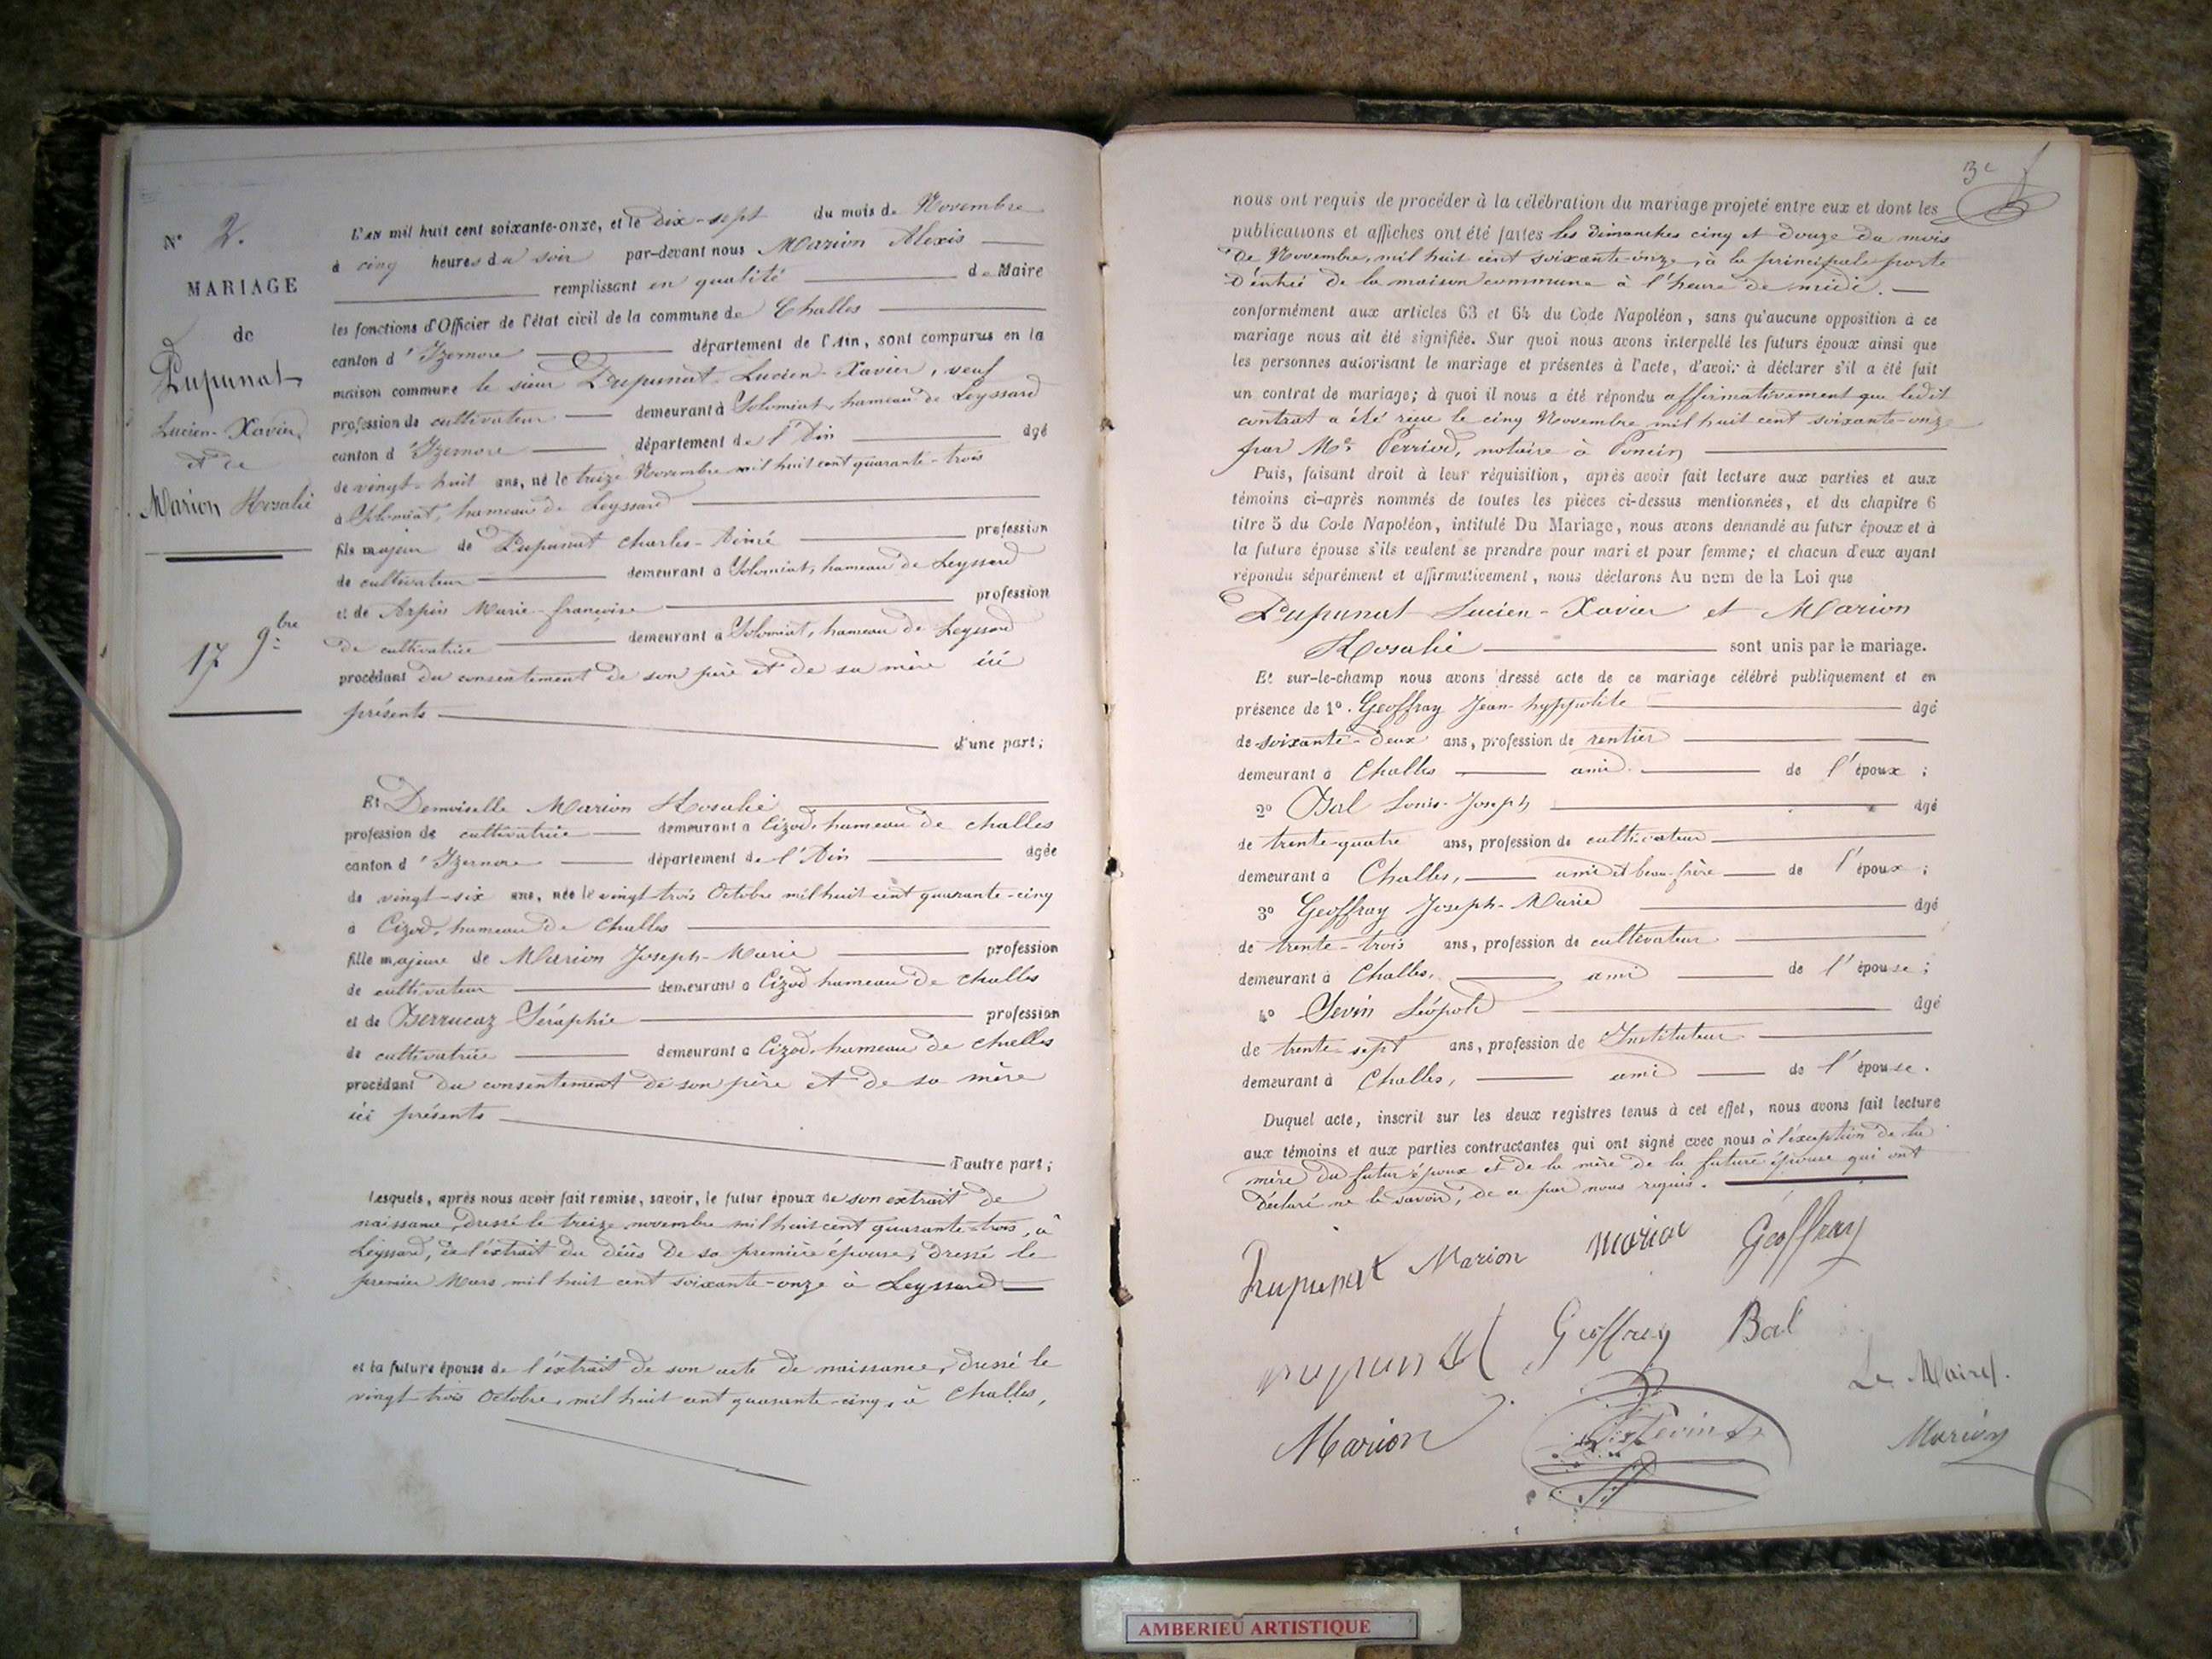 N° 2.
MARIAGE
de
Pupunat
Lucien-Xavier
et de
Marion Rosalie
17 9bre
L'AN mil huit cent soixante-onze, et le dix-sept du mois de Novembre
à cinq heures du soir par-devant nous Marion Alexis
remplissant en qualité de Maire
les fonctions d'Officier de l'état civil de la commune de Challes
canton d'Izernore département de l'Ain, sont comparus en la
maison commune le sieur Pupunat Lucien-Xavier, veuf
profession de cultivateur demeurant à Solomiat, hameau de Leyssard
canton d'Izernore département de l'Ain âgé
de vingt-huit ans, né le treize Novembre mil huit cent quarante-trois
à Solomiat, hameau de Leyssard
fils majeur de Pupunat Charles-Aimé profession
de cultivateur demeurant à Solomiat, hameau de Leyssard
et de Arpin Marie-françoise profession
de cultivatrice demeurant à Solomiat, hameau de Leyssard
procédant du consentement de son père et de sa mère ici
présents
d'une part;
Et Demoiselle Marion Rosalie
profession de cultivatrice demeurant à Cizod, hameau de challes
canton d'Izernore département de l'Ain âgée
de vingt-six ans, née le vingt-trois Octobre mil huit cent quarante-cinq
à Cizod, hameau de Challes
fille majeure de Marion Joseph-Marie profession
de cultivateur demeurant à Cizod hameau de challes
et de Berrucaz Séraphie profession
de cultivatrice demeurant à Cizod, hameau de challes
procédant du consentement de son père et de sa mère
ici présents
d'autre part;
Lesquels, après nous avoir fait remise, savoir, le futur époux de son extrait de
naissance, dressé le treize novembre mil huit cent quarante-trois, à
Leyssard, de l'extrait du décès de sa première épouse, dressé le
premier Mars mil huit cent soixante-onze à Leyssard
et la future épouse de l'extrait de son acte de naissance, dressé le
vingt-trois Octobre, mil huit cent quarante-cinq, à Challes,
3e
nous ont requis de procéder à la célébration du mariage projeté entre eux et dont les
publications et affiches ont été faites les dimanches cinq et douze du mois
de Novembre, mil huit cent soixante-onze, à la principale porte
d'entrée de la maison commune à l'heure de midi.
conformément aux articles 63 et 64 du Code Napoléon, sans qu'aucune opposition à ce
mariage nous ait été signifiée. Sur quoi nous avons interpellé les futurs époux ainsi que
les personnes autorisant le mariage et présentes à l'acte, d'avoir à déclarer s'il a été fait
un contrat de mariage; à quoi il nous a été répondu affirmativement que ledit
contrat a été reçu le cinq Novembre mil huit cent soixante-onze
par Me Perriod, notaire à Poncin
Puis, faisant droit à leur réquisition, après avoir fait lecture aux parties et aux
témoins ci-après nommés de toutes les pièces ci-dessus mentionnées, et du chapitre 6
titre 5 du Code Napoléon, intitulé Du Mariage, nous avons demandé au futur époux et à
la future épouse s'ils veulent se prendre pour mari et pour femme; et chacun d'eux ayant
répondu séparément et affirmativement, nous déclarons Au nom de la Loi que
Pupunat Lucien-Xavier et Marion
Rosalie sont unis par le mariage.
Et sur-le-champ nous avons dressé acte de ce mariage célébré publiquement et en
présence de 1° Geoffray Jean-hyppolite âgé
de soixante-deux ans, profession de rentier
demeurant à Challes ami de l'époux;
2° Bal Louis-Joseph âgé
de trente-quatre ans, profession de cultivateur
demeurant à Challes, ami et beau-frère de l'époux;
3° Geoffray Joseph-Marie âgé
de trente-trois ans, profession de cultivateur
demeurant à Challes, ami de l'épouse;
4° Sevin Léopold âgé
de trente-sept ans, profession de Instituteur
demeurant à Challes, ami de l'épouse.
Duquel acte, inscrit sur les deux registres tenus à cet effet, nous avons fait lecture
aux témoins et aux parties contractantes qui ont signé avec nous à l'exception de la
mère du futur époux et de la mère de la future épouse qui ont
déclaré ne le savoir, de ce par nous requis.
Pupunat Marion Marion Geoffray
pupunat Geoffray Bal
Le Maire.
Marion Sevin Marion
AMBERIEU ARTISTIQUE